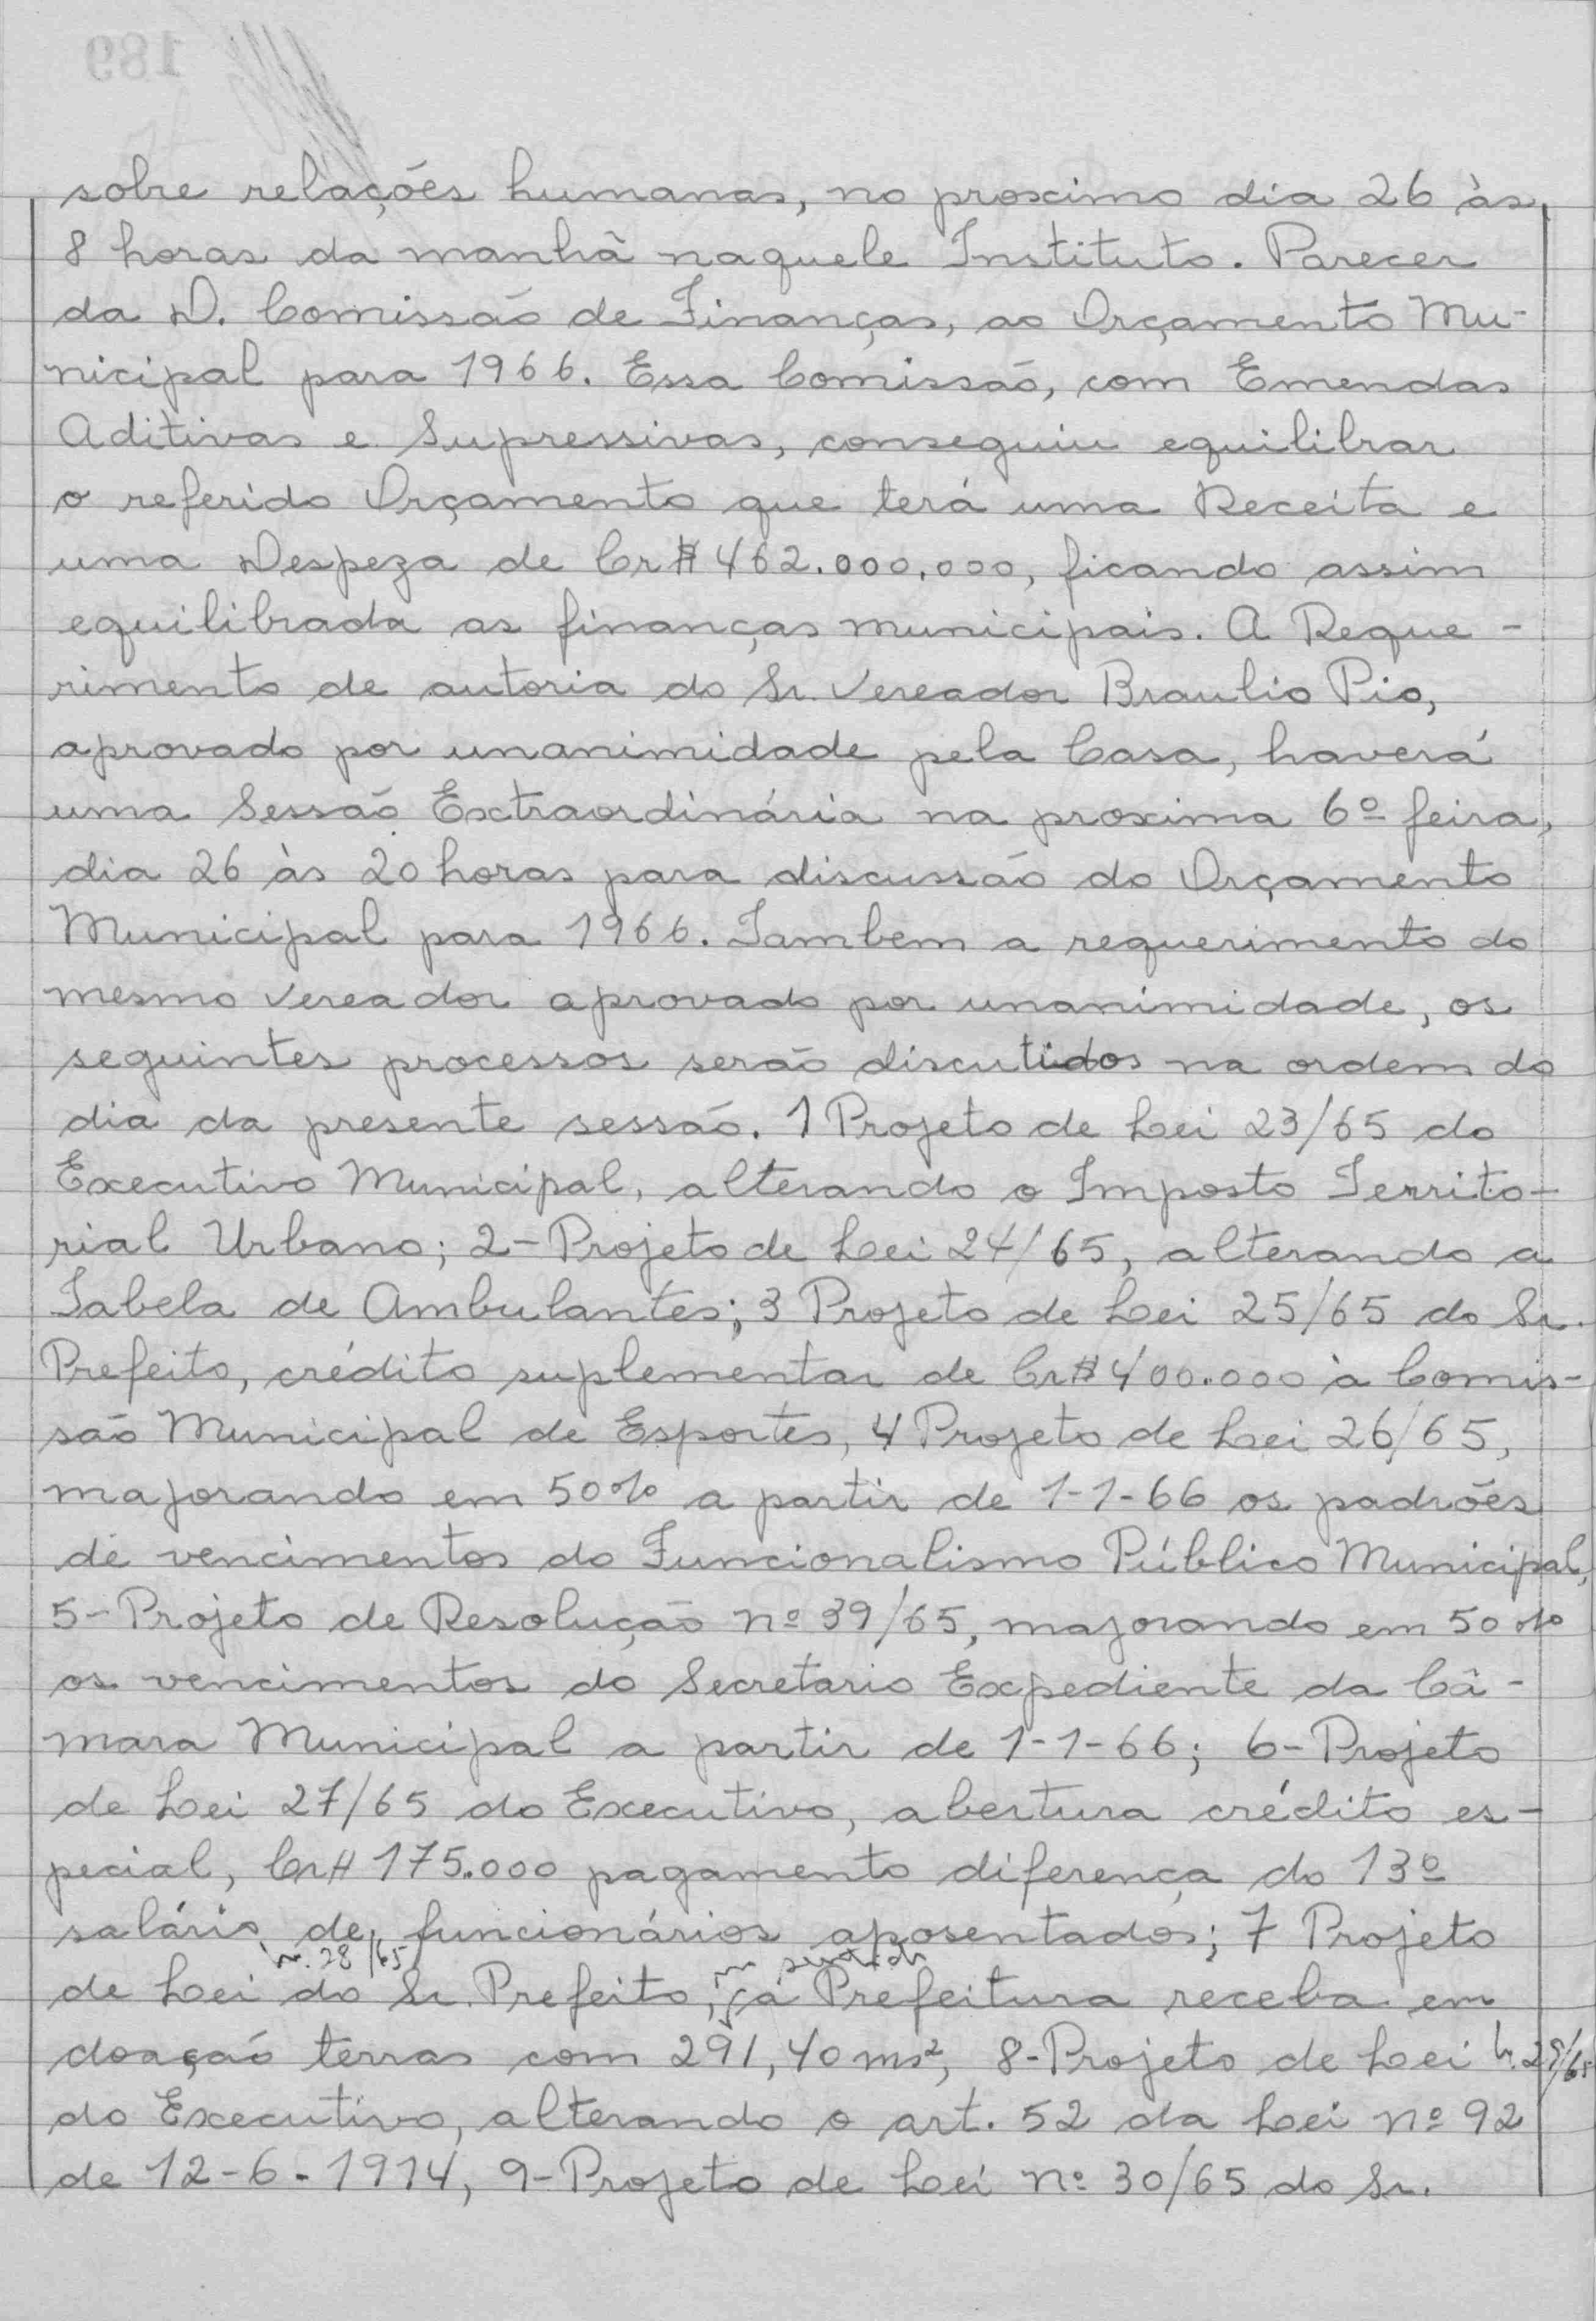 sobre relações humanas, no proximo dia 26 às
8 horas da manhã naquele Instituto. Parecer
da D. Comissão de Finanças, ao Orçamento Mu-
nicipal para 1966. Essa Comissão, com Emendas
Aditivas e Supressivas, conseguiu equilibrar
o referido Orçamento que terá uma Receita e
uma Despeza de Cr$ 462.000.000, ficando assim
equilibrada as finanças municipais. A Reque-
rimento de autoria do Sr. Vereador Braulio Pio,
aprovado por unanimidade pela Casa, haverá
uma Sessão Extraordinária na proxima 6º feira,
dia 26 às 20 horas para discussão do Orçamento
Municipal para 1966. Tambem a requerimento do
mesmo Vereador aprovado por unanimidade, os
seguintes processos serão discutidos na ordem do
dia da presente sessão. 1 Projeto de Lei 23/65 do
Executivo Municipal, alterando o Imposto Territo-
rial Urbano; 2- Projeto de Lei 24/65, alterando a
Tabela de Ambulantes; 3 Projeto de Lei 25/65 do Sr.
Prefeito, crédito suplementar de Cr$ 400.000 à Comis-
são Municipal de Esportes, 4 Projeto de Lei 26/65,
majorando em 50% a partir de 1-1-66 os padrões
de vencimentos do Funcionalismo Público Municipal,
5- Projeto de Resolução nº 39/65, majorando em 50%
os vencimentos do Secretario Expediente da Câ-
mara Municipal a partir de 1-1-66; 6- Projeto
de Lei 27/65 do Executivo, abertura crédito es-
pecial, Cr$ 175.000 pagamento diferença do 13º
salário de funcionários aposentados; 7 Projeto
n. 28/65
de Lei do Sr. Prefeito, a Prefeitura receba em
doação terras com 291,40 ms², 8- Projeto de Lei n. 29/65
do Executivo, alterando o art. 52 da Lei nº 92
de 12-6-1914, 9- Projeto de Lei nº 30/65 do Sr.